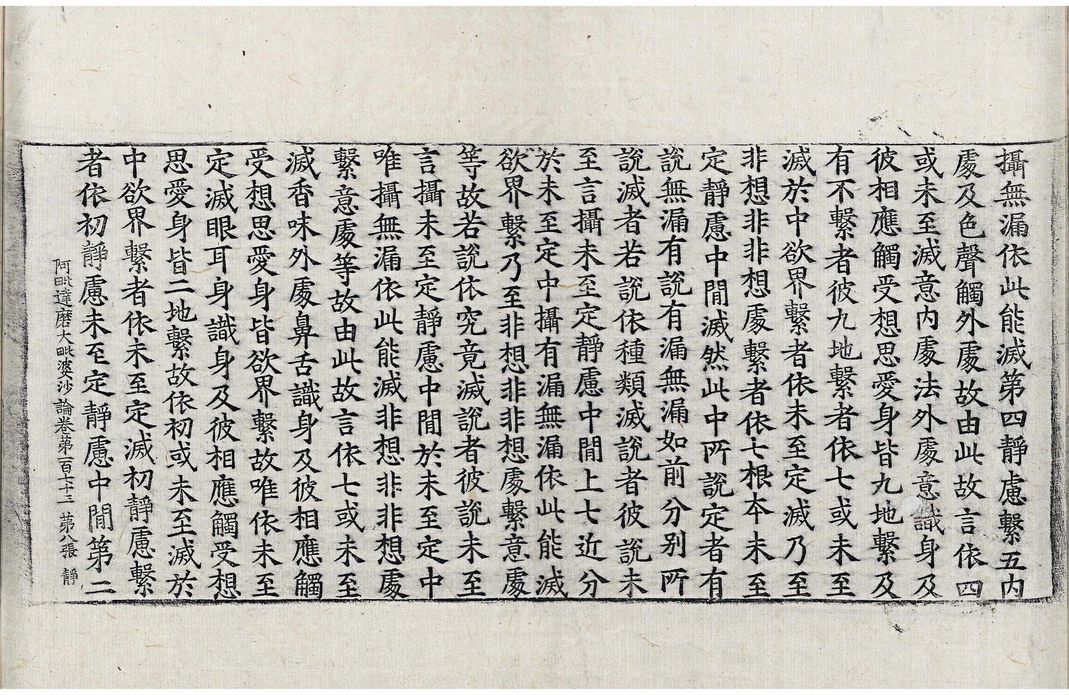 攝無漏依此能滅第四靜慮繫五內
處及色聲觸外處故由此故言依四
或未至滅意內處法外處意識身及
彼相應觸受想思愛身皆九地繫及
有不繫者彼九地繫者依七或未至
滅於中欲界繫者依未至定滅乃至
非想非非想處繫者依七根本未至
定靜慮中閒滅然此中所說定者有
說無漏有說有漏無漏如前分別所
說滅者若說依種類滅說者彼說未
至言攝未至定靜慮中閒上七近分
於未至定中攝有漏無漏依此能滅
欲界繫乃至非想非非想處繫意處
等故若說依究竟滅說者彼說未至
言攝未至定靜慮中閒於未至定中
唯攝無漏依此能滅非想非非想處
繫意處等故由此故言依七或未至
滅香味外處鼻舌識身及彼相應觸
受想思愛身皆欲界繫故唯依未至
定滅眼耳身識身及彼相應觸受想
思愛身皆二地繫故依初或未至滅於
中欲界繫者依未至定滅初靜慮繫
者依初靜慮未至定靜慮中閒第二
阿毗達磨大毗婆沙論卷第一百七十三 第八張 靜